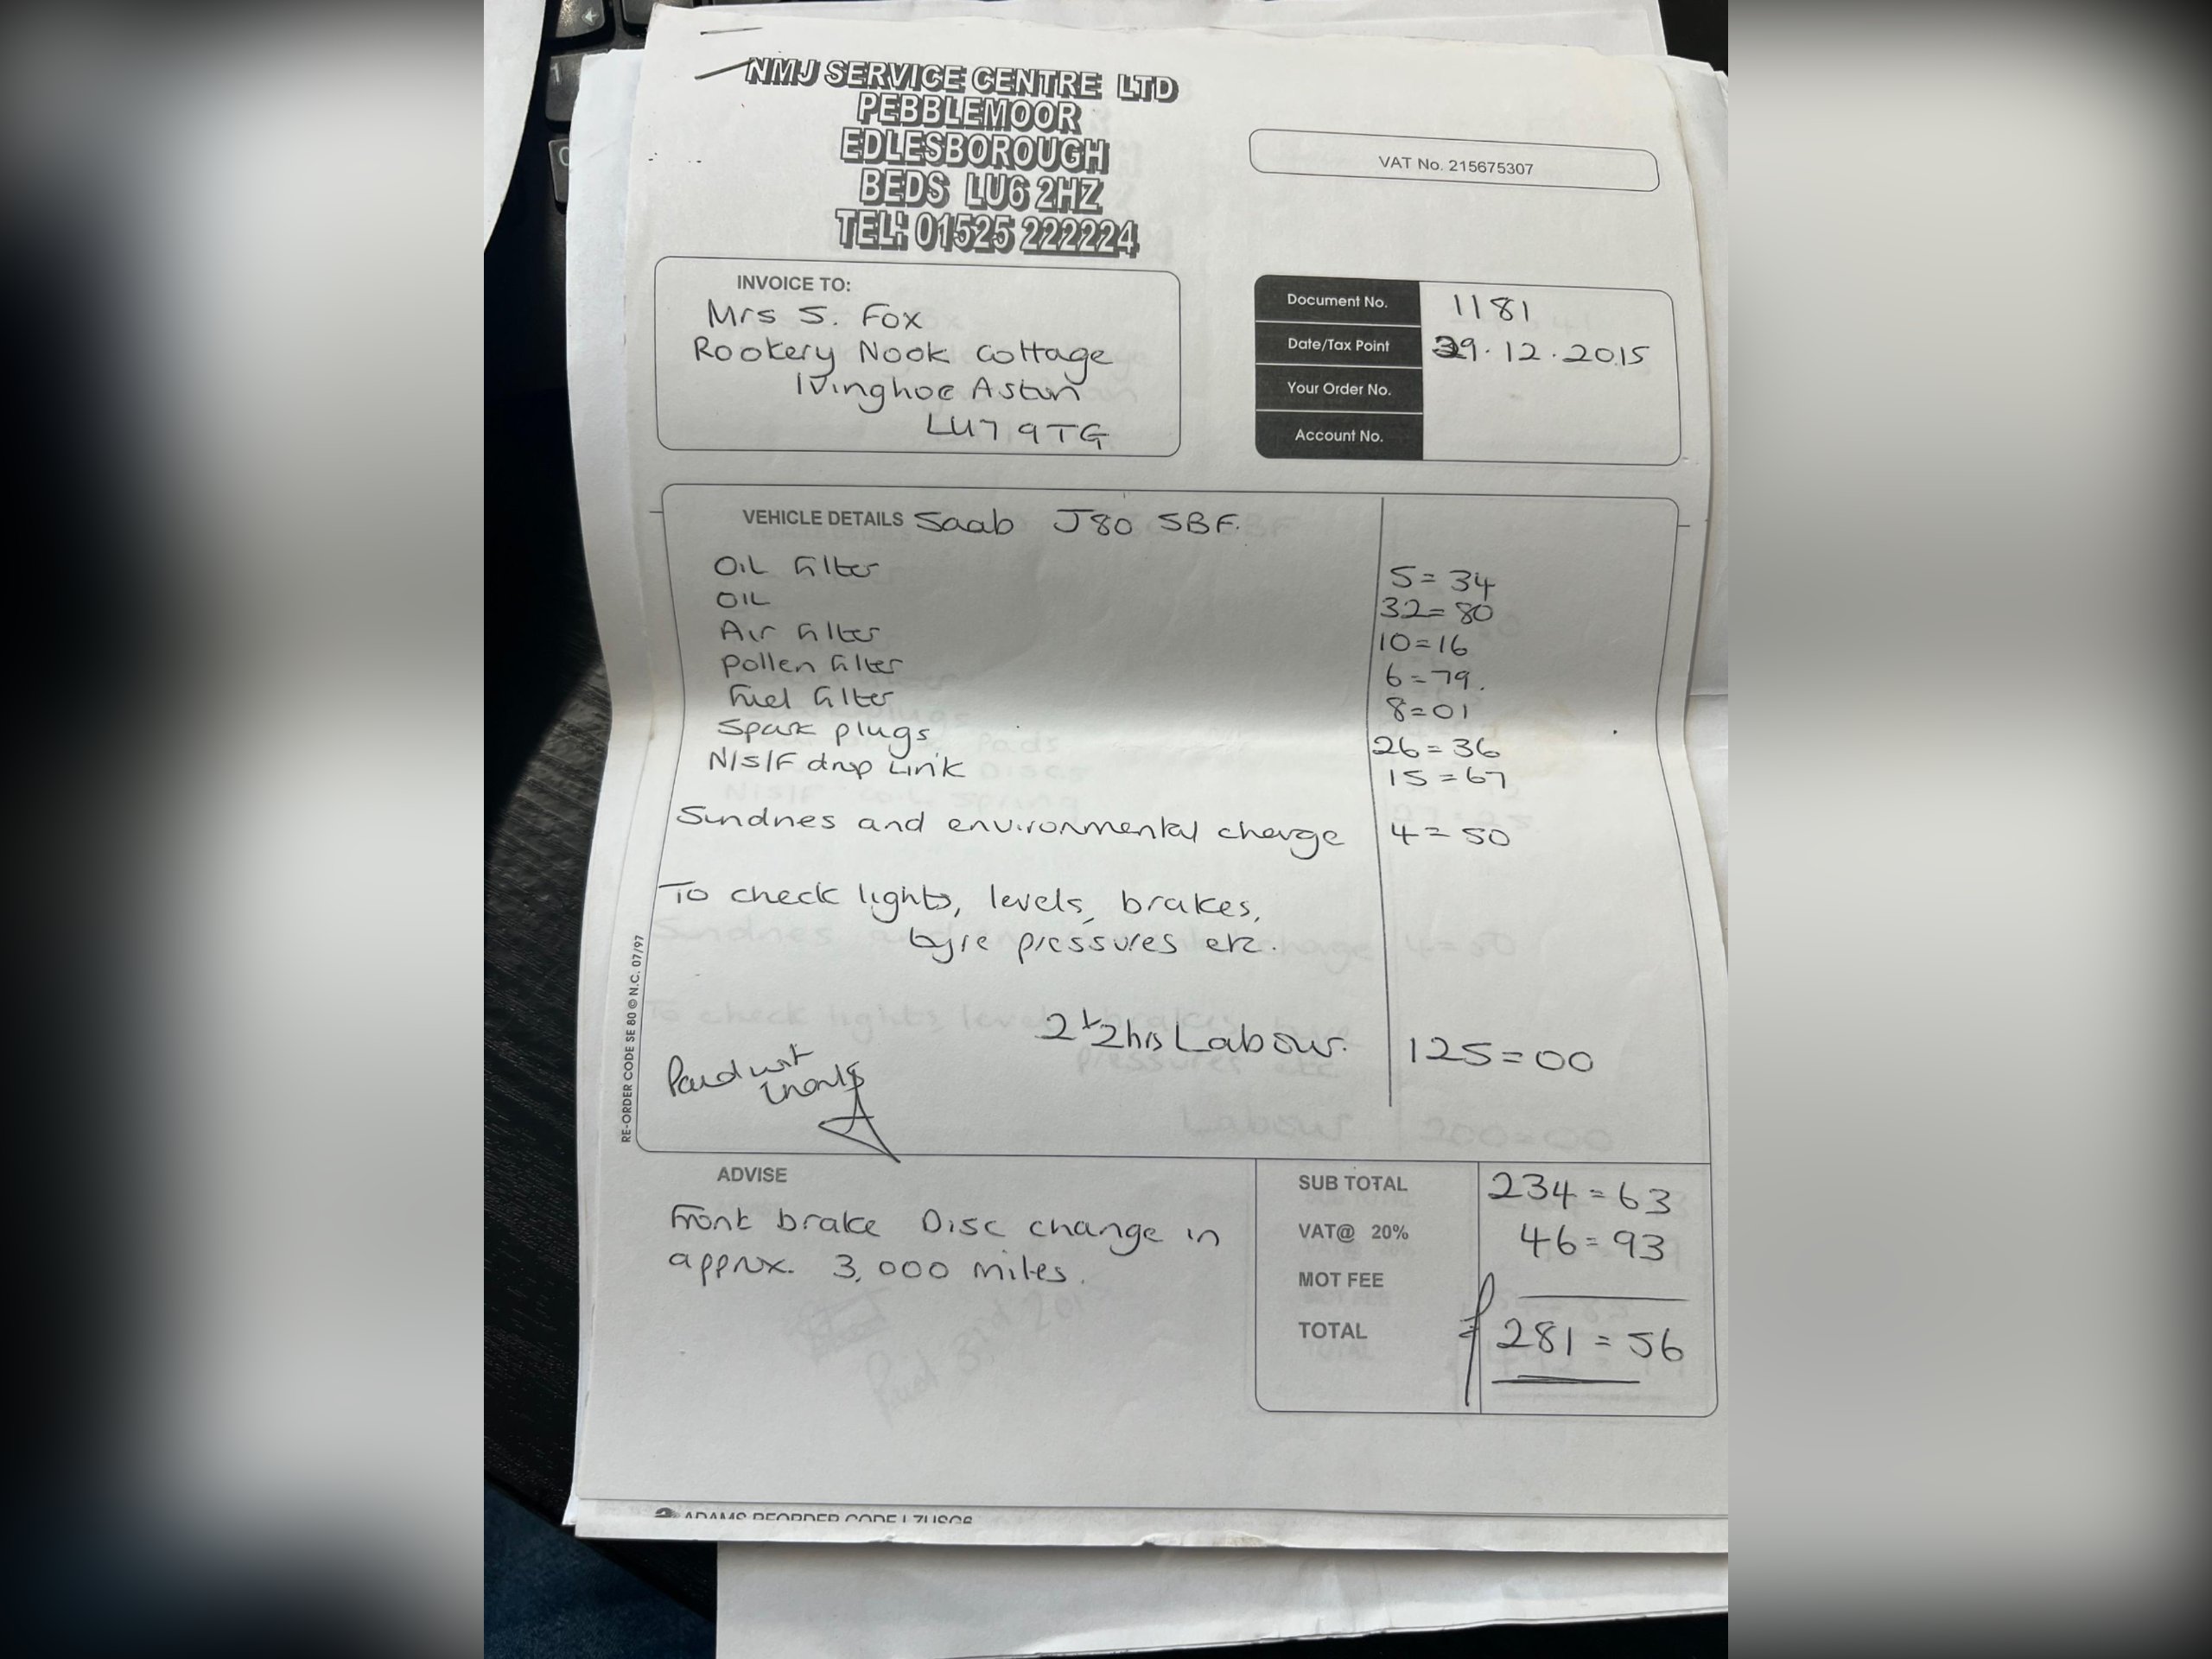 NMJ SERVICE CENTRE LTD
PEBBLEMOOR
EDLESBOROUGH
BEDS LU6 2HZ
TEL: 01525 222224
VAT No. 215675307
INVOICE TO:
Mrs S. Fox
Rookery Nook Cottage
Ivinghoe Aston
LU7 9TG
Document No. 1181
Date/Tax Point 29.12.2015
Your Order No.
Account No.
VEHICLE DETAILS Saab J80 SBF.
Oil filter 5=34
OIL 32=80
Air filter 10=16
Pollen filter 6=79.
Fuel filter 8=01
Spark plugs 26=36
N/S/F drop Link 15=67
Sundries and environmental charge 4=50
To check lights, levels, brakes,
tyre pressures etc.
2 1/2 hrs Labour. 125=00
Paid
RE-ORDER CODE SE 80 © N.C. 07/97
ADVISE
Front brake Disc change in
approx. 3,000 miles.
SUB TOTAL 234=63
VAT@ 20% 46=93
MOT FEE
TOTAL £ 281=56
ADAMS REORDER CODE